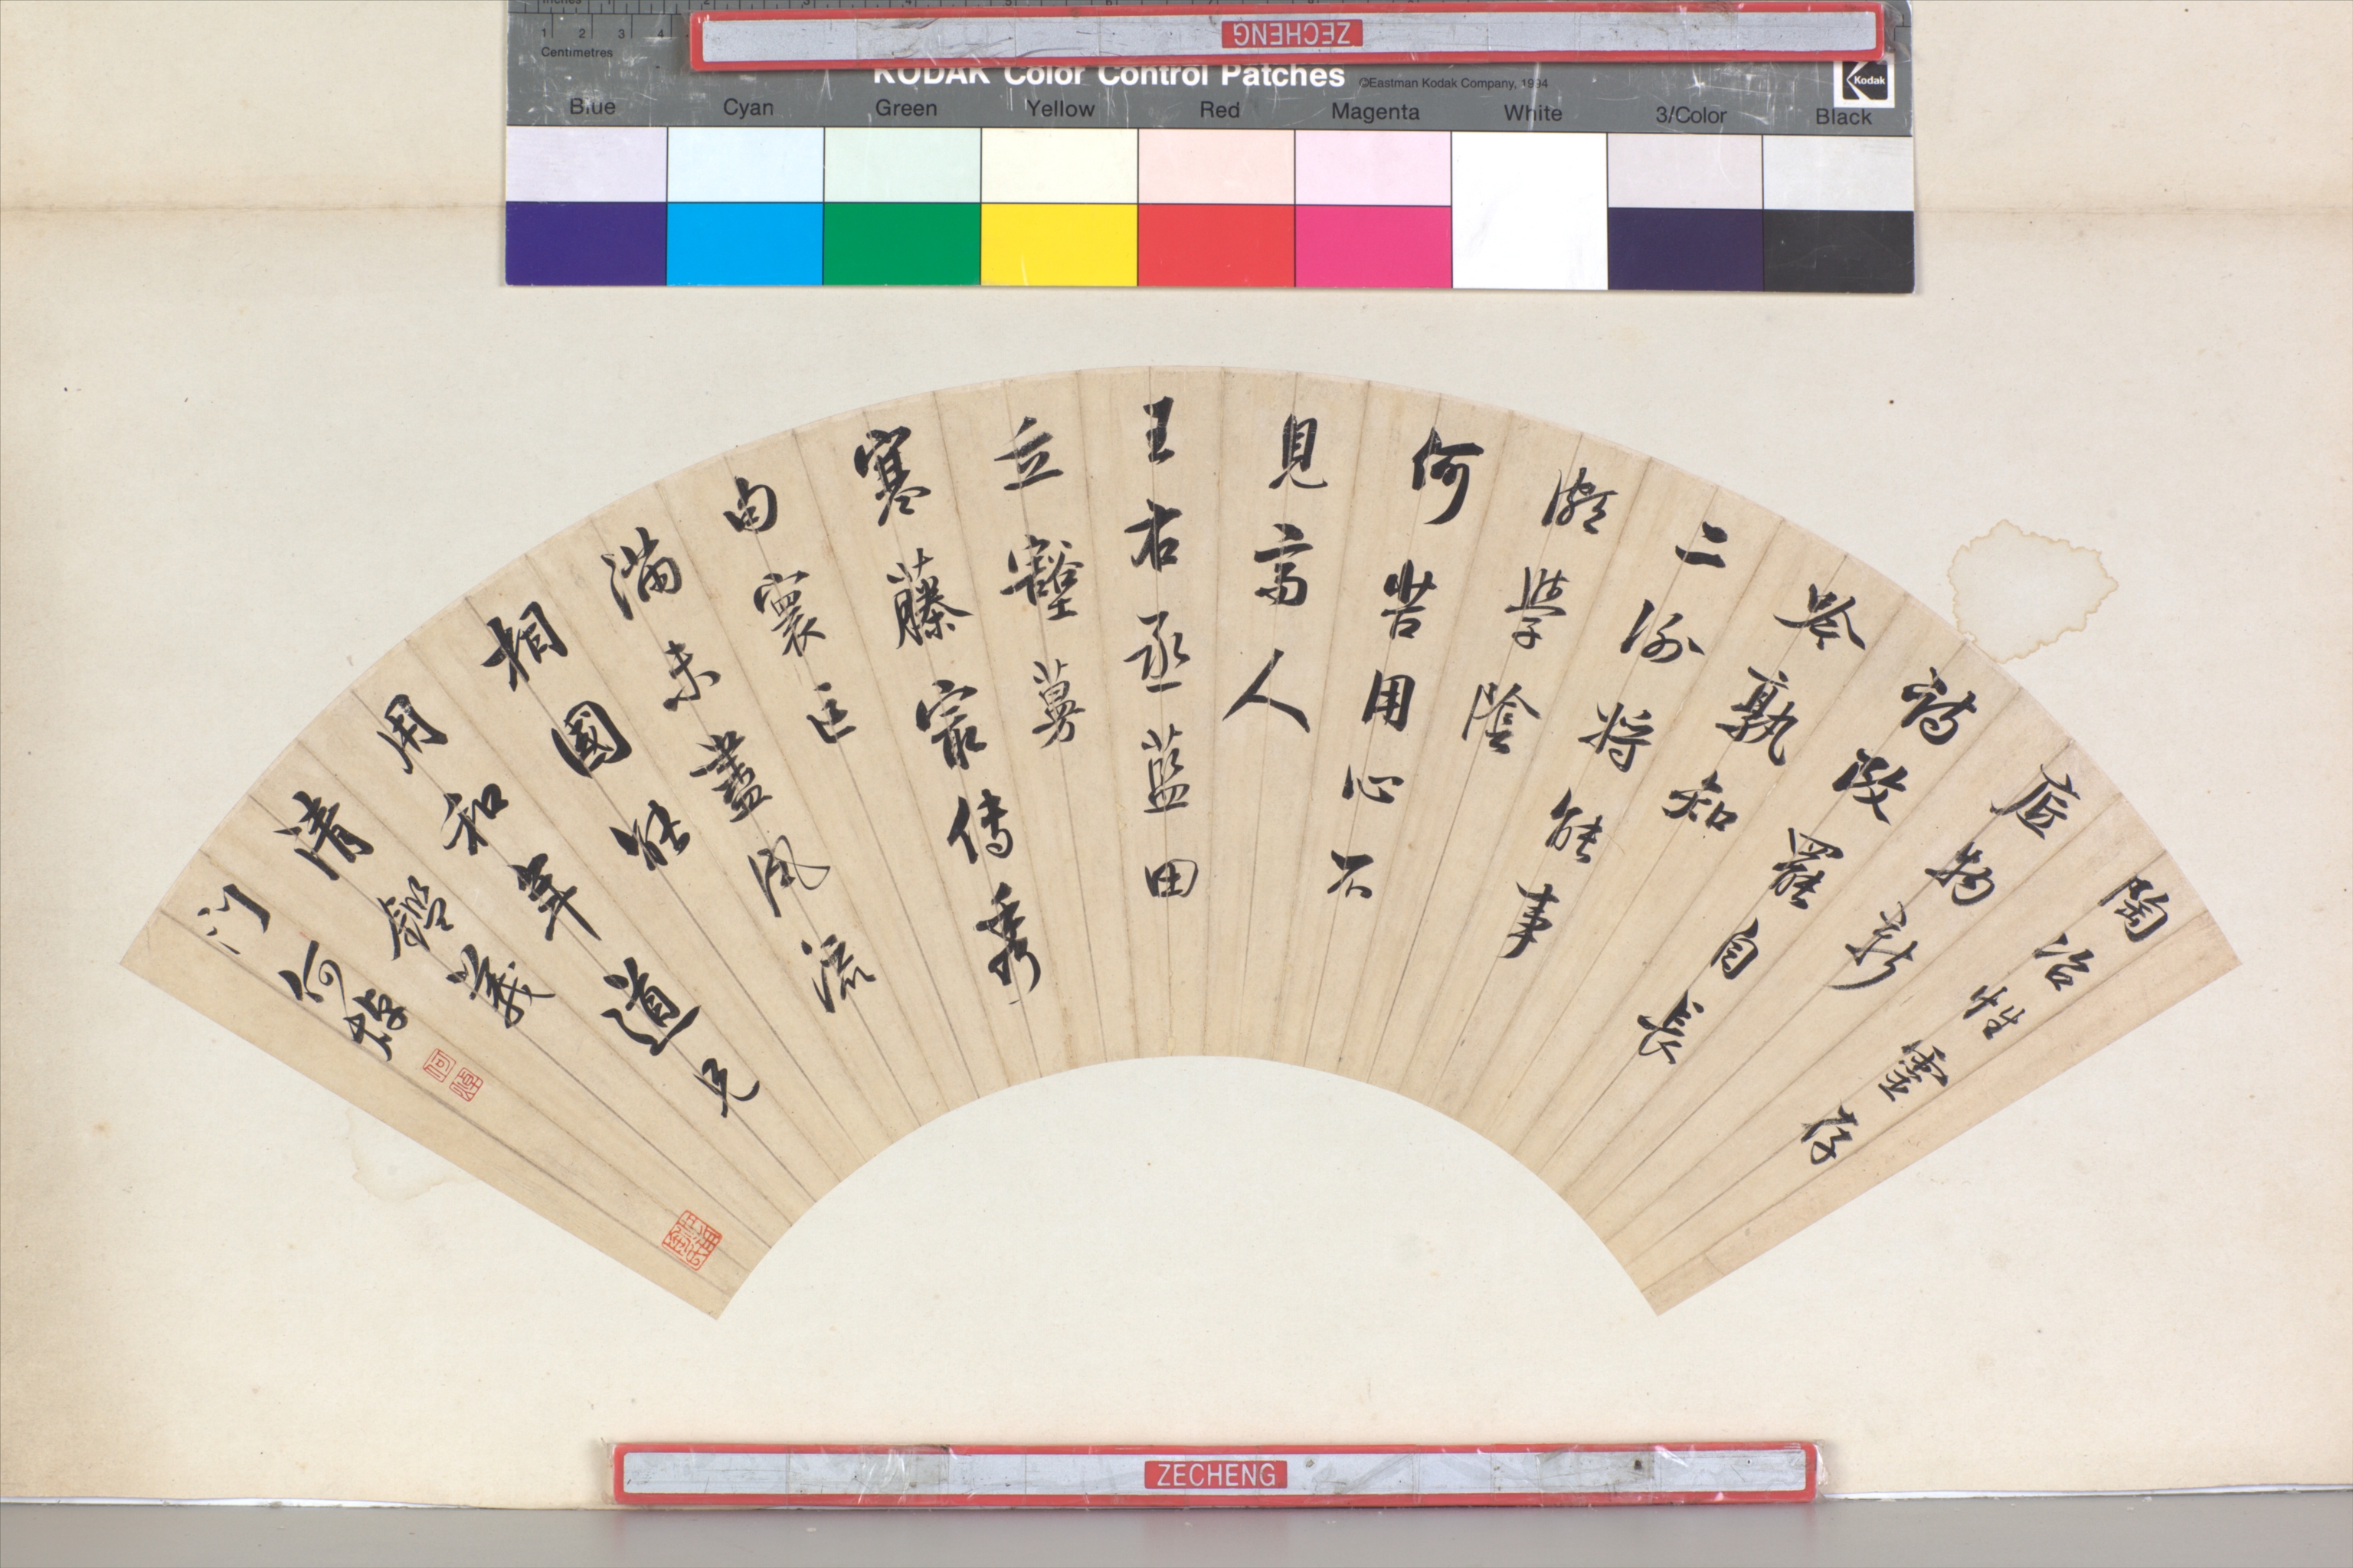 Inches
Centimetres
1 2 3 4
ZECHENG
KODAK Color Control Patches
©Eastman Kodak Company, 1994
Kodak
Blue Cyan Green Yellow Red Magenta White 3/Color Black
陶冶性靈存
底物新
詩改罷自長
吟孰知
二謝將能事
頗學陰
何苦用心不
見高人
王右丞藍田
丘壑蔓
寒藤㝡傳秀
句寰區
滿未盡風流
相國能
用和年道兄
清鑑義
门何焯
ZECHENG